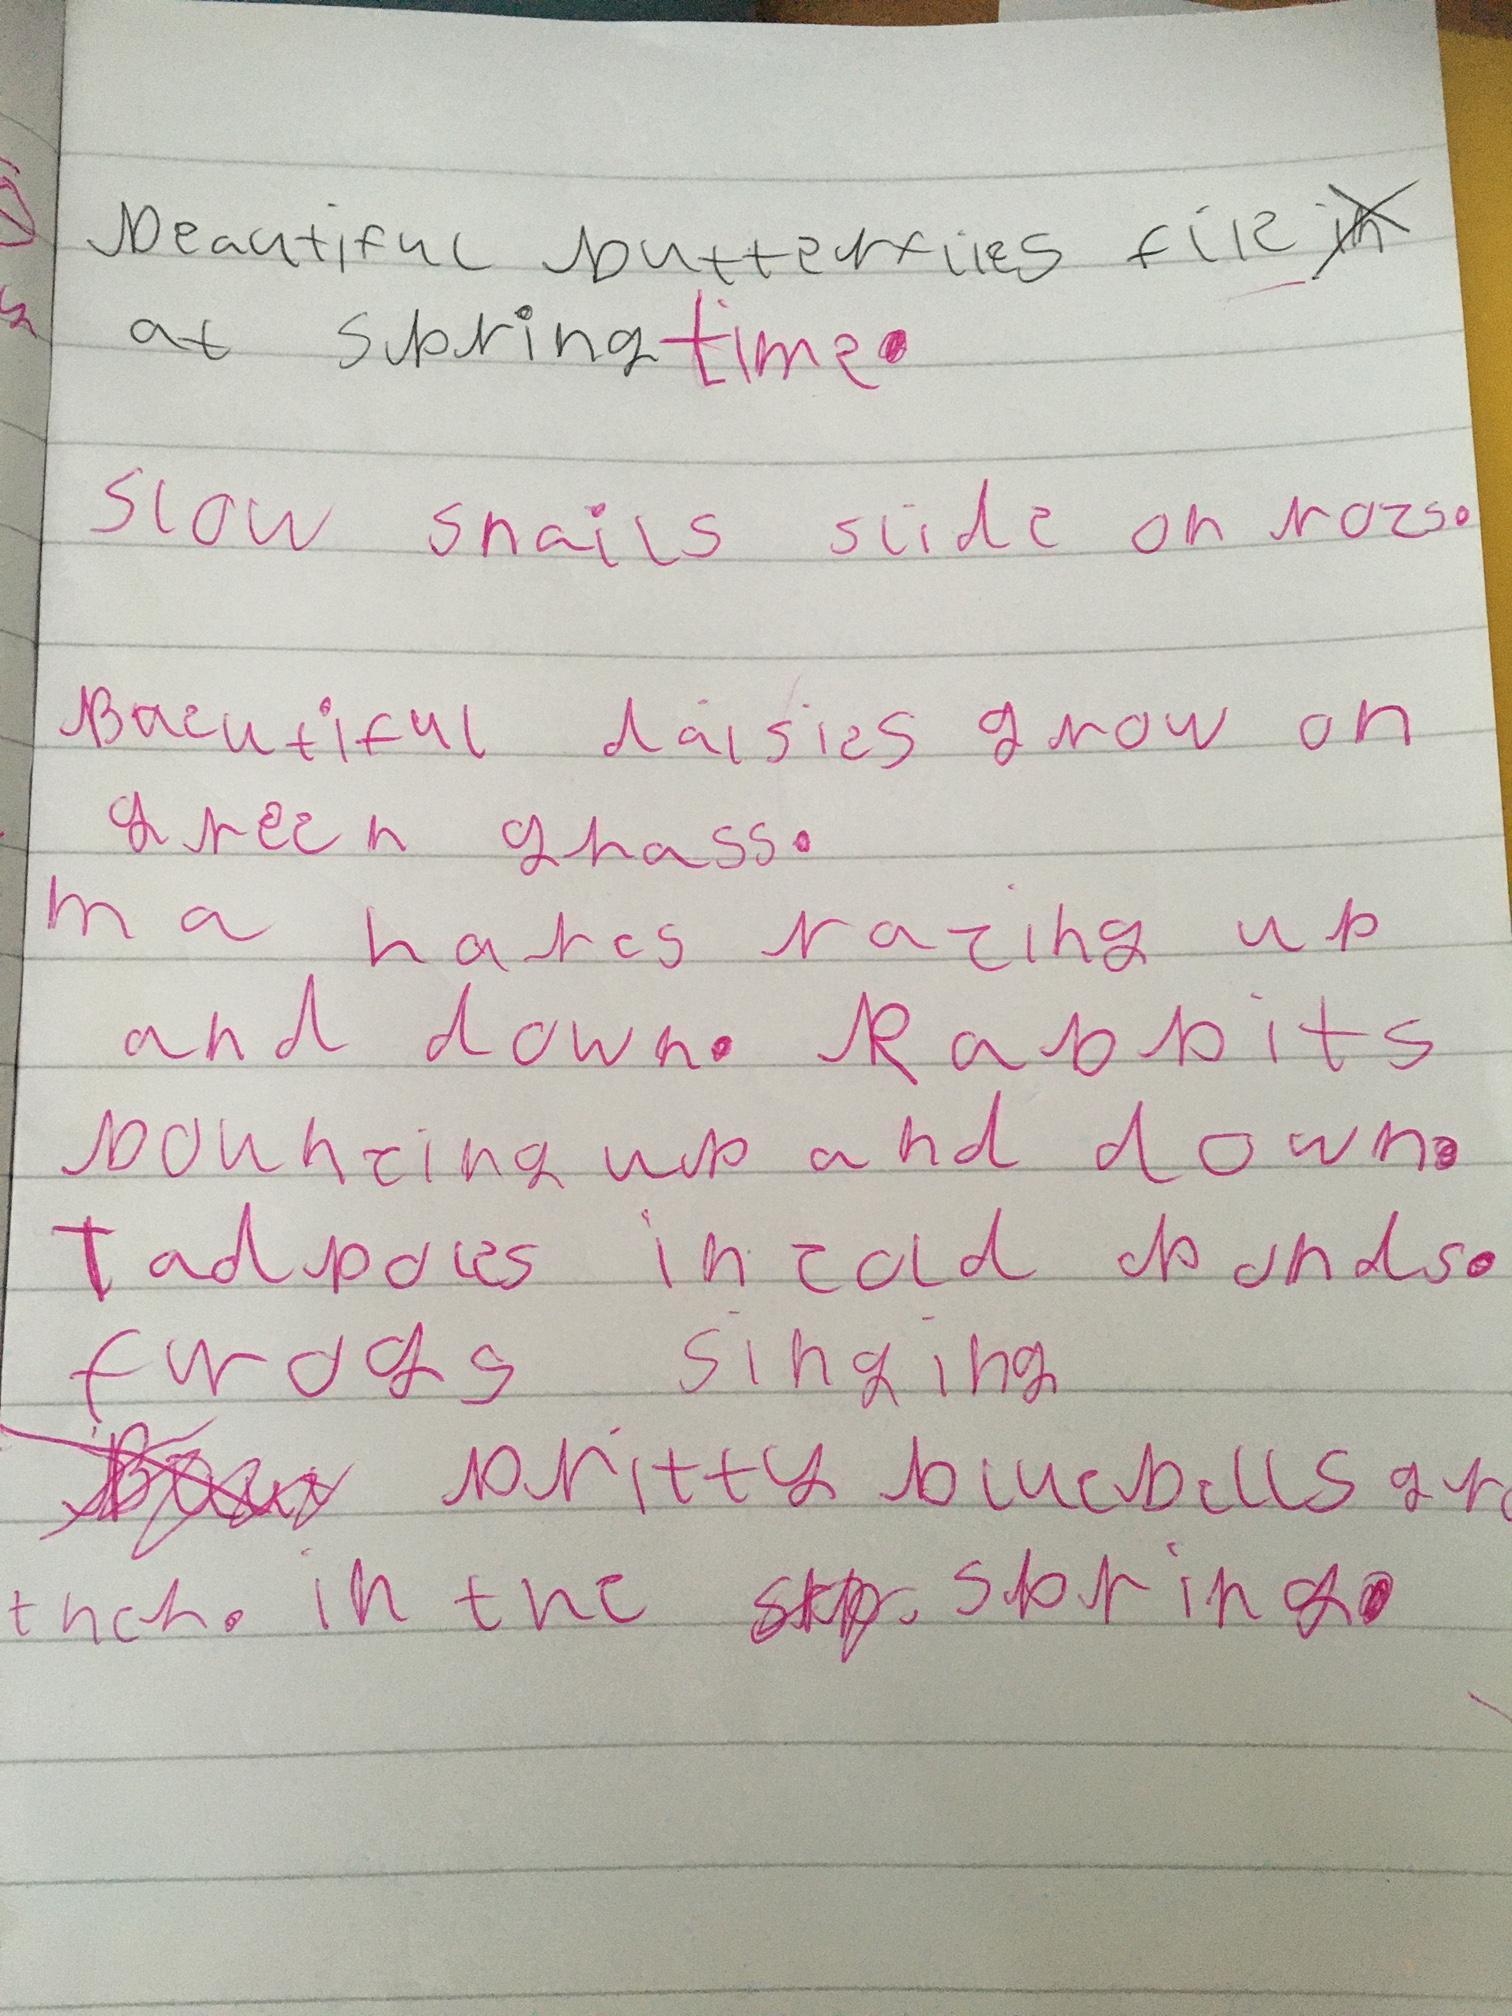 beautiful butterflies flie in
at springtime.
Slow snails slide on rocs.
Baeutiful daisies grow on
green grass.
m a hares racing up
and down. Rabbits
bouncing up and down.
Tadpoles in cold ponds.
frogs singing
pritty bluebells gro
in the spring.